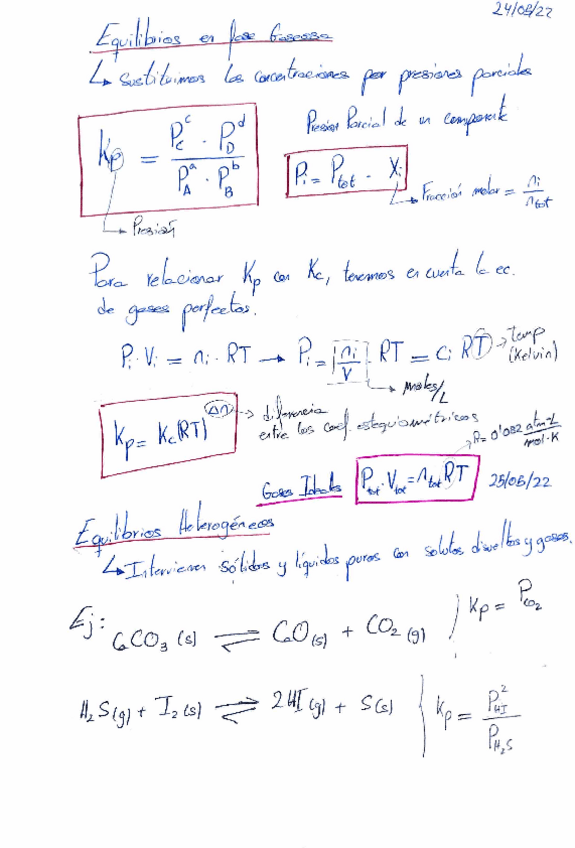 24/05/22
Equilibrios en fase Gaseosa
↳ Sustituimos las concentraciones por presiones parciales
Kp = P_C^c · P_D^d / P_A^a · P_B^b
Presión
Presión Parcial de un componente
Pi = Ptot · Xi
Fracción molar = ni / ntot
Para relacionar Kp con Kc, tenemos en cuenta la ec.
de gases perfectos.
Pi · Vi = ni · RT → Pi = ni / V RT = Ci RT → Temp (Kelvin)
moles/L
Kp = Kc(RT)^Δn → diferencia
entre los coef. estequiométricos
R = 0'082 atm·L / mol·K
Gases Ideales Ptot · Vtot = ntot RT 25/05/22
Equilibrios Heterogéneos
↳ Intervienen sólidos y líquidos puros con solutos disueltos y gases.
Ej: CaCO3 (s) ⇌ CaO(s) + CO2 (g) Kp = P_CO2
H2S(g) + I2(s) ⇌ 2HI(g) + S(s) Kp = P_HI^2 / P_H2S